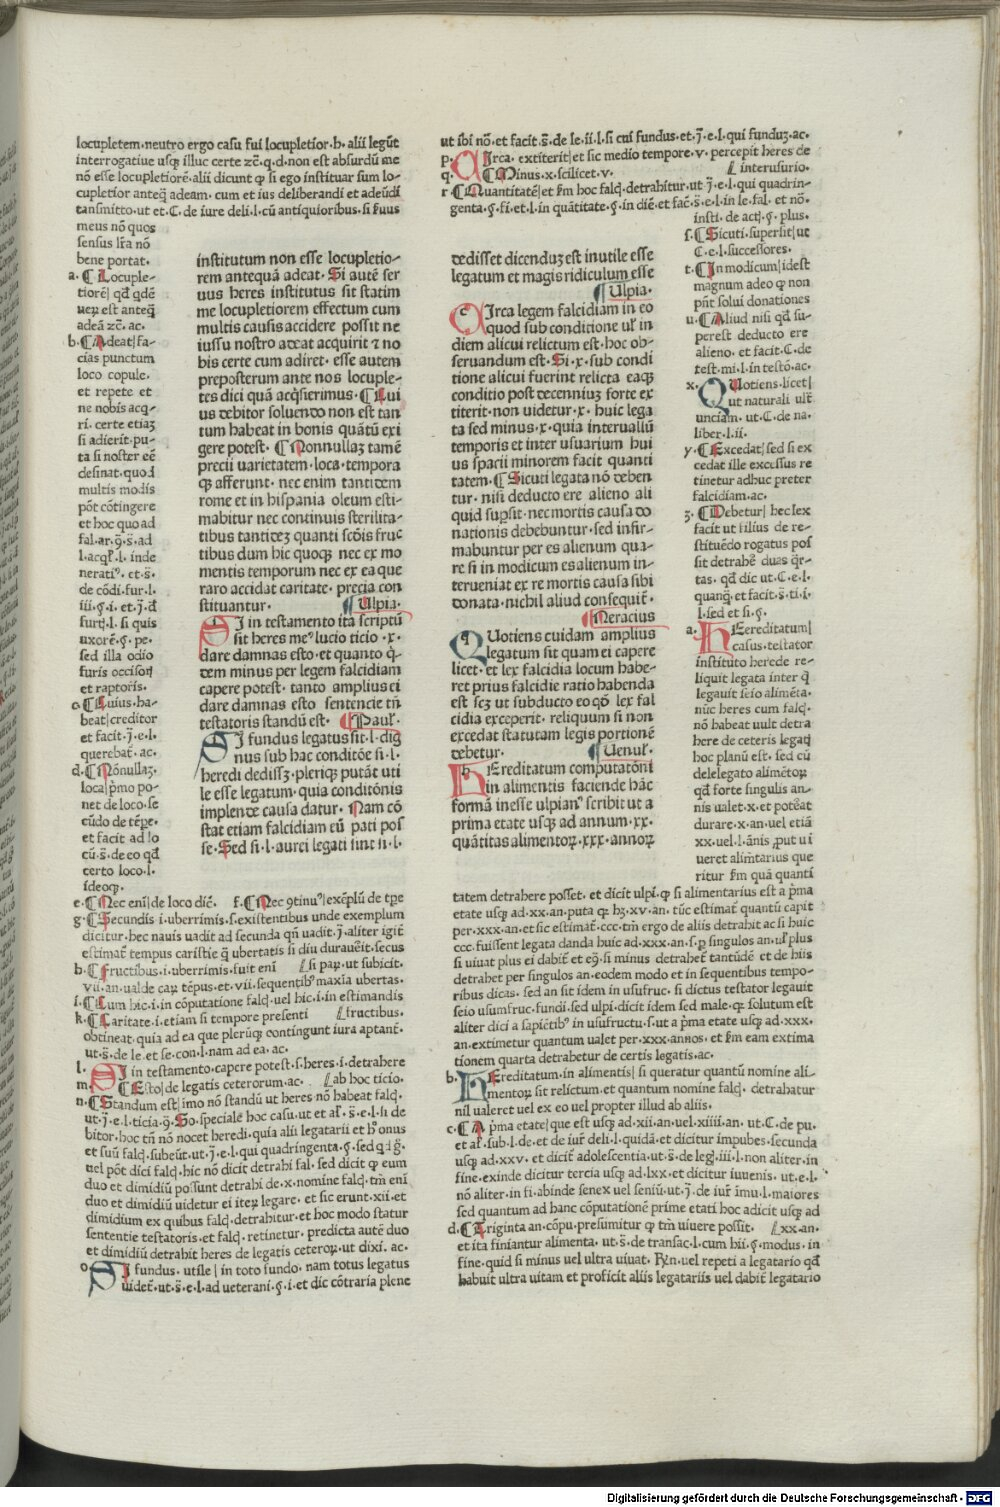 locupletem·neutro ergo casu fui locupletior·h·alii legūt
interrogatiue usqꝫ illuc certe zc̄·q·d·non est absurdū me
nō esse locupletiorē·alii dicunt ꝙ si ego instituar sum lo-
cupletior anteq̄ adeam·cum et ius deliberandi et adeūdi
tansmitto·ut et·C·de iure deli·l·cū antiquioribus·si seruus
meus nō quos
sensus lr̄a nō
bene portat·
a·¶Locuple-
tiorē| qd̄ qdē
uerū est anteq̄
adeā zc̄·ac·
b·¶Adeat|fa-
cias punctum
loco copule·
et repete et
ne nobis acq-
ri·certe etiaꝫ
si adierit·pu-
ta si noster eē
desinat·quod
multis modis
pōt cōtingere
et hoc quo ad
fal·ar·ꝯ·s̄·ad
l·acql̄·l·inde
nerati⁹·et·s̄·
de cōdi·fur·l·
iii·§·i·et·j̄·d̄
furti·l·si quis
uxorē·§·pe·
sed illa odio
furis occisorꝫ
et raptoris·
c·¶Cuius·ha-
beat|creditor
et facit·j̄·e·l·
querebat̄·ac·
d·¶Nōnullaꝫ·
loca|p̄mo po-
net de loco·se
cūdo de tēpe·
et facit ad lo
cū·s̄·de eo qd̄
certo loco·l·
ideoqꝫ·
institutum non esse locupletio-
rem antequā adeat·Si autē ser
uus heres institutus sit statim
me locupletiorem effectum cum
multis causis accidere possit ne
iussu nostro adeat acquirit ⁊ no
bis certe cum adiret·esse autem
preposterum ante nos locuple-
tes dici quā acq̄sierimus·¶Cui
us debitor soluendo non est tan
tum habeat in bonis quātū exi
gere potest·¶Nonnullaꝫ tamē
precii uarietatem·loca·tempora
qꝫ afferunt·nec enim tantidem
rome et in hispania oleum esti-
mabitur nec continuis sterilita-
tibus tantideꝫ quanti scōis fruc
tibus dum hic quoqꝫ nec ex mo
mentis temporum nec ex ea que
raro accidat caritate·precia con
stituantur· ¶Ulpia·
SI in testamento ita scriptū
sit heres me⁹ lucio ticio·x·
dare damnas esto·et quanto q̄-
dem minus per legem falcidiam
capere potest·tanto amplius ei
dare damnas esto sentencie tn̄
testatoris standū est· ¶Paul̄·
SI fundus legatus sit·l·dig
nus sub hac conditōe si·l·
heredi dedissꝫ·pleriqꝫ putāt uti
le esse legatum·quia conditōnis
implende causa datur·Nam cō
stat etiam falcidiam eū pati pos
se·Sed si·l·aurei legati sint si·l·
e·¶Nec eni|de loco diē· f·¶Nec ꝯtinu⁹|exēplū de tp̄e
g·¶Secundis·i·uberrimis·s·existentibus unde exemplum
dicitur·hec nauis uadit ad secunda qn̄ uadit·j̄·aliter igit̄
estimat̄ tempus caristie q̄ ubertatis si diu durauerit·secus
h·¶Fructibus·i·uberrimis·fuit eni ⁅si paꝝ·ut subicit·
vii·an·ualde caꝝ tēpus·et·vii·sequentib⁹ maxīa ubertas·
i·¶Cum hic·i·in cōputatione falcꝫ·uel hic·i·in estimandis
k·¶Caritate·i·etiam si tempore presenti ⁅fructibus·
obtineat·quia ad ea que plerūqꝫ contingunt iura aptant̄·
ut·s̄·de le·et se·con·l·nam ad ea·ac·
l·SI in testamento·capere potest·s·heres·i·detrahere
m·¶Esto|de legatis ceterorum·ac· ⁅ab hoc ticio·
n·¶Standum est|imo nō standū ut heres nō habeat falcꝫ·
ut·j̄·e·l·ticia·ꝯ·So·speciale hoc casu·ut et ar̄·s̄·e·l·si de
bitor·hoc tn̄ nō nocet heredi·quia alii legatarii et hr̄ onus
et suū falcꝫ·subeūt·ut·j̄·e·l·qui quadringenta·§·sed q·i·g̅·
uel pōt dici falcꝫ·hic nō dicit detrahi fal·sed dicit ꝙ eum
duo et dimidiū possunt detrahi de·x·nomine falcꝫ·tm̄ eni
duo et dimidiū uidetur ei iteꝝ legare·et sic erunt·xii·et
dimidium ex quibus falcꝫ·detrahitur·et hoc modo statur
sententie testatoris·et falcꝫ·retinetur·predicta autē duo
et dimidiū detrahit heres de legatis ceteroꝝ·ut dixi·ac·
o·SI fundus·utile|in toto fundo·nam totus legatus
uidet̄·ut·s̄·e·l·ad ueterani·§·i·et dic cōtraria plene
ut ibi nō·et facit·s̄·de le·ii·l·si cui fundus·et·j̄·e·l·qui funduꝫ·ac·
p·CIrca·extiterit|et sic medio tempore·v·percepit heres de
q·¶Minus·x·scilicet·v· ⁅interusurio·
r·¶Quantitatē|et s̄m hoc falcꝫ·detrahitur·ut·j̄·e·l·qui quadrin-
genta·§·fi·et·l·in quātitate·§·in diē·et fac̄·s̄·e·l·in le·fal·et nō·
insti·de act̄·§·plus·
s·¶Sicuti·supersit|ut
C·e·l·successores·
t·¶In modicum|idest
magnum adeo ꝙ non
pn̄t solui donationes
u·¶Aliud nisi qd̄ su-
perest deducto ere
alieno·et facit·C·de
test·mi·l·in testō·ac·
x·QUotiens·licet|
ut naturali ult̄
unciam·ut·C·de na·
liber·l·ii·
y·¶Excedat|sed si ex
cedat ille excessus re
tinetur adhuc preter
falcidiam·ac·
z·¶Debetur|hec lex
facit ut filius de re-
stituēdo rogatus pos
sit detrahē duas q̄r-
tas·qd̄ dic ut·C·e·l·
quanq̄·et facit·s̄·ti·i·
l·sed et si·§·
a·HEreditatum|
casus·testator
instituto herede re-
liquit legata inter q̄
legauit seio alimēta·
nūc heres cum falcꝫ·
nō habeat uult detra
here de ceteris legat̄
hoc planū est·sed cū
delelegato alimētoꝝ
qd̄ forte singulis an-
nis ualet·x·et poterat
durare·x·an·uel etiā
xx·uel·l·ānis ꝓut ui
ueret alim̄tarius que
ritur s̄m quā quanti
dedisset dicenduꝫ est inutile esse
legatum et magis ridiculum esse
¶Ulpia·
CIrca legem falcidiam in eo
quod sub conditione ul̄ in
diem alicui relictum est·hoc ob-
seruandum est·Si·x·sub condi
tione alicui fuerint relicta eaqꝫ
conditio post decenniuꝫ forte ex
titerit·non uidetur·x·huic lega
ta sed minus·x·quia interuallū
temporis et inter usuarium hui
us spacii minorem facit quanti
tatem·¶Sicuti legata nō deben
tur·nisi deducto ere alieno ali
quid suꝑsit·nec mortis causa do
nationis debebuntur·sed infir-
mabuntur per es alienum qua-
re si in modicum es alienum in-
terueniat ex re mortis causa sibi
donata·nichil aliud consequit̄·
¶Neracius
QUotiens cuidam amplius
legatum sit quam ei capere
licet·et lex falcidia locum habe-
ret prius falcidie ratio habenda
est scꝫ ut subducto eo qd̄ lex fal
cidia exceperit·reliquum si non
excedat statutam legis portionē
debetur· ¶Uenul̄·
HEreditatum computatōni
in alimentis faciende hāc
formā inesse ulpian⁹ scribit ut a
prima etate usqꝫ ad annum·xx·
quātitas alimentoꝝ·xxx·annoꝝ
tatem detrahere posset·et dicit ulpi·ꝙ si alimentarius est a p̄ma
etate usqꝫ ad·xx·an·puta qꝛ hꝫ·xv·an·tūc estimat̄ quantū capit
per·xxx·an·et sic estimat̄·ccc·tm̄ ergo de aliis detrahit ac si huic
ccc·fuissent legata danda huic ad·xxx·an·s·ꝑ singulos an·ul̄ plus
si uiuat plus ei dabit̄ et eꝯ·si minus detrahet̄ tantūdē et de hiis
detrahet per singulos an·eodem modo et in sequentibus tempo-
ribus dicas·sed an sit idem in usufruc·si dictus testator legauit
seio usumfruc·fundi·sed ulpi·dicit idem sed male·qꝛ solutum est
aliter dici a sapiētib⁹ in usufructu·s·ut a p̄ma etate usqꝫ ad·xxx·
an·extimetur quantum ualet per·xxx·annos·et s̄m eam extima
tionem quarta detrahetur de certis legatis·ac·
b·HEreditatum·in alimentis|si queratur quantū nomine ali-
mentoꝝ sit relictum·et quantum nomine falcꝫ·detrahatur
nil ualeret uel ex eo uel propter illud ab aliis·
c·¶A p̄ma etate|que est usqꝫ ad·xii·an·uel·xiiii·an·ut·C·de pu·
et ar̄·sub·l·de·et de iur̄ deli·l·quidā·et dicitur impubes·secunda
usqꝫ ad·xxv·et dicit̄ adolescentia·ut·s̄·de leg̅·iii·l·non aliter·in
fine·exinde dicitur tercia usqꝫ ad·lxx·et dicitur iuuenis·ut·e·l·
nō aliter·in fi·abinde senex uel seniū·ut·j̄·de iur̄ īmu·l·maiores
sed quantum ad hanc cōputationē prime etati hoc adicit usqꝫ ad
d·¶Triginta an·cōpu·presumitur ꝙ tm̄ uiuere possit· ⁅xx·an·
et ita finiantur alimenta·ut·s̄·de transac·l·cum hii·§·modus·in
fine·quid si minus uel ultra uiuat·Rn̄·uel repeti a legatario qd̄
habuit ultra uitam et proficit aliis legatariis uel dabit̄ legatario
Digitalisierung gefördert durch die Deutsche Forschungsgemeinschaft - DFG